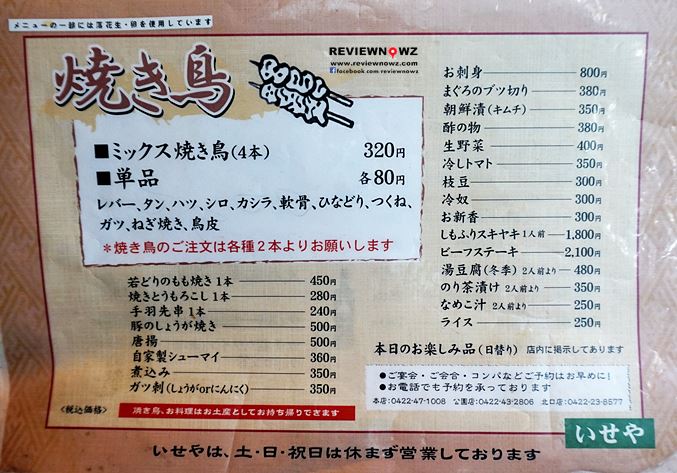 メニューの一部には落花生・卵を使用しています
焼き鳥
REVIEWNOWZ
www.reviewnowz.com
facebook.com/reviewnowz
■ミックス焼き鳥(4本) 320円
■単品 各80円
レバー、タン、ハツ、シロ、カシラ、軟骨、ひなどり、つくね、
ガツ、ねぎ焼き、鳥皮
*焼き鳥のご注文は各種2本よりお願いします
若どりのもも焼き 1本 450円
焼きとうもろこし 1本 280円
手羽先串 1本 240円
豚のしょうが焼き 500円
唐揚 500円
自家製シューマイ 360円
煮込み 350円
ガツ刺(しょうがorにんにく) 350円
<税込価格>
焼き鳥、お料理はお土産としてお持ち帰りできます
お刺身 800円
まぐろのブツ切り 380円
朝鮮漬(キムチ) 350円
酢の物 380円
生野菜 400円
冷しトマト 350円
枝豆 300円
冷奴 300円
お新香 300円
しもふりスキヤキ 1人前 1,800円
ビーフステーキ 2,100円
湯豆腐(冬季) 2人前より 480円
のり茶漬け 2人前より 350円
なめこ汁 2人前より 250円
ライス 250円
本日のお楽しみ品(日替り) 店内に掲示してあります
●ご宴会・ご会合・コンパなどご予約はお早めに!
●お電話でも予約を承っております
本店:0422-47-1008 公園店:0422-43-2806 北口店:0422-23-8577
いせや
いせやは、土・日・祝日は休まず営業しております